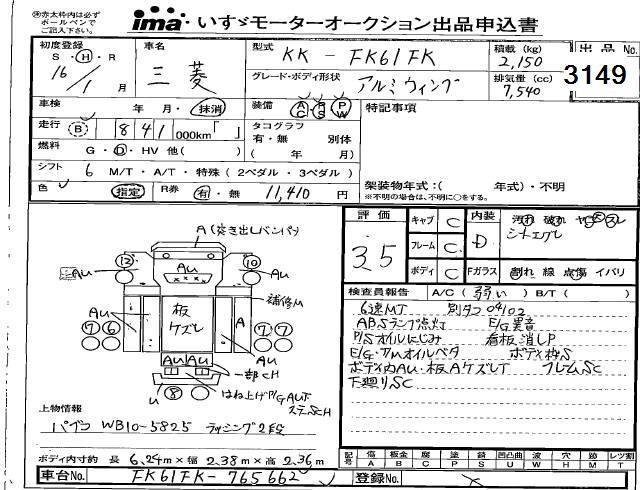 ※赤太枠内は必ず
ボールペンで
ご記入下さい。
ima いすゞモーターオークション出品申込書
初度登録
S・H・R
16/1月
車名
三菱
型式
KK-FK61FK
グレード・ボディ形状
アルミウィング
積載(kg)
2,150
排気量(cc)
7,540
出品No.
3149
車検
年 月・抹消
装備 AC PS PW
特記事項
走行 B 841 000km「 」
タコグラフ
有・無 別体
( 年 月)
燃料 G・D・HV 他( )
シフト 6 M/T・A/T・特殊(2ペダル・3ペダル)
色 指定 R券 有・無 11,410 円
架装物年式:( 年式)・不明
※不明の場合は、不明に○をする。
A(突き出しバンパ)
12 Au
10 Au
Au
補修M
Au
板
ケズレ
A
7 6
7 7
Au Au
一部CH
U 8
はね上げP/G AUT
ステーSCH
上物情報
パブコ WB10-5825 ラッシング2段
ボディ内寸約 長 6.24m×幅 2.38m×高 2.36m
評価
35
キャブ C
フレーム C
ボディ C
内装 D
汚れ 破れ ヤニ 穴 スレ
シートエグレ
Fガラス 割れ 線 点傷 イバリ
検査員報告 A/C(弱い) B/T( )
6速MT 別タコ 04/02
ABSランプ点灯 E/G異音
P/Sオイルにじみ 看板消しP
E/G・T/Mオイルベタ ボディ枠S
ボディ内AU・板Aケズレ フレームSC
下廻りSC
記号 傷A 板金B 腐C 塗P 錆S 凹凸曲U 波W 穴H 跡M レツ割T
車台No. FK61FK-765662
登録No.